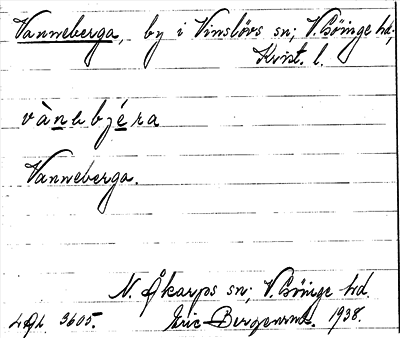 Vanneberga, by i Vinslövs sn; V. Göinge hd;
Krist. l.
vànebjéra
Vanneberga.
N. Åkarps sn; V. Göinge hd.
3605. Eric 1938.